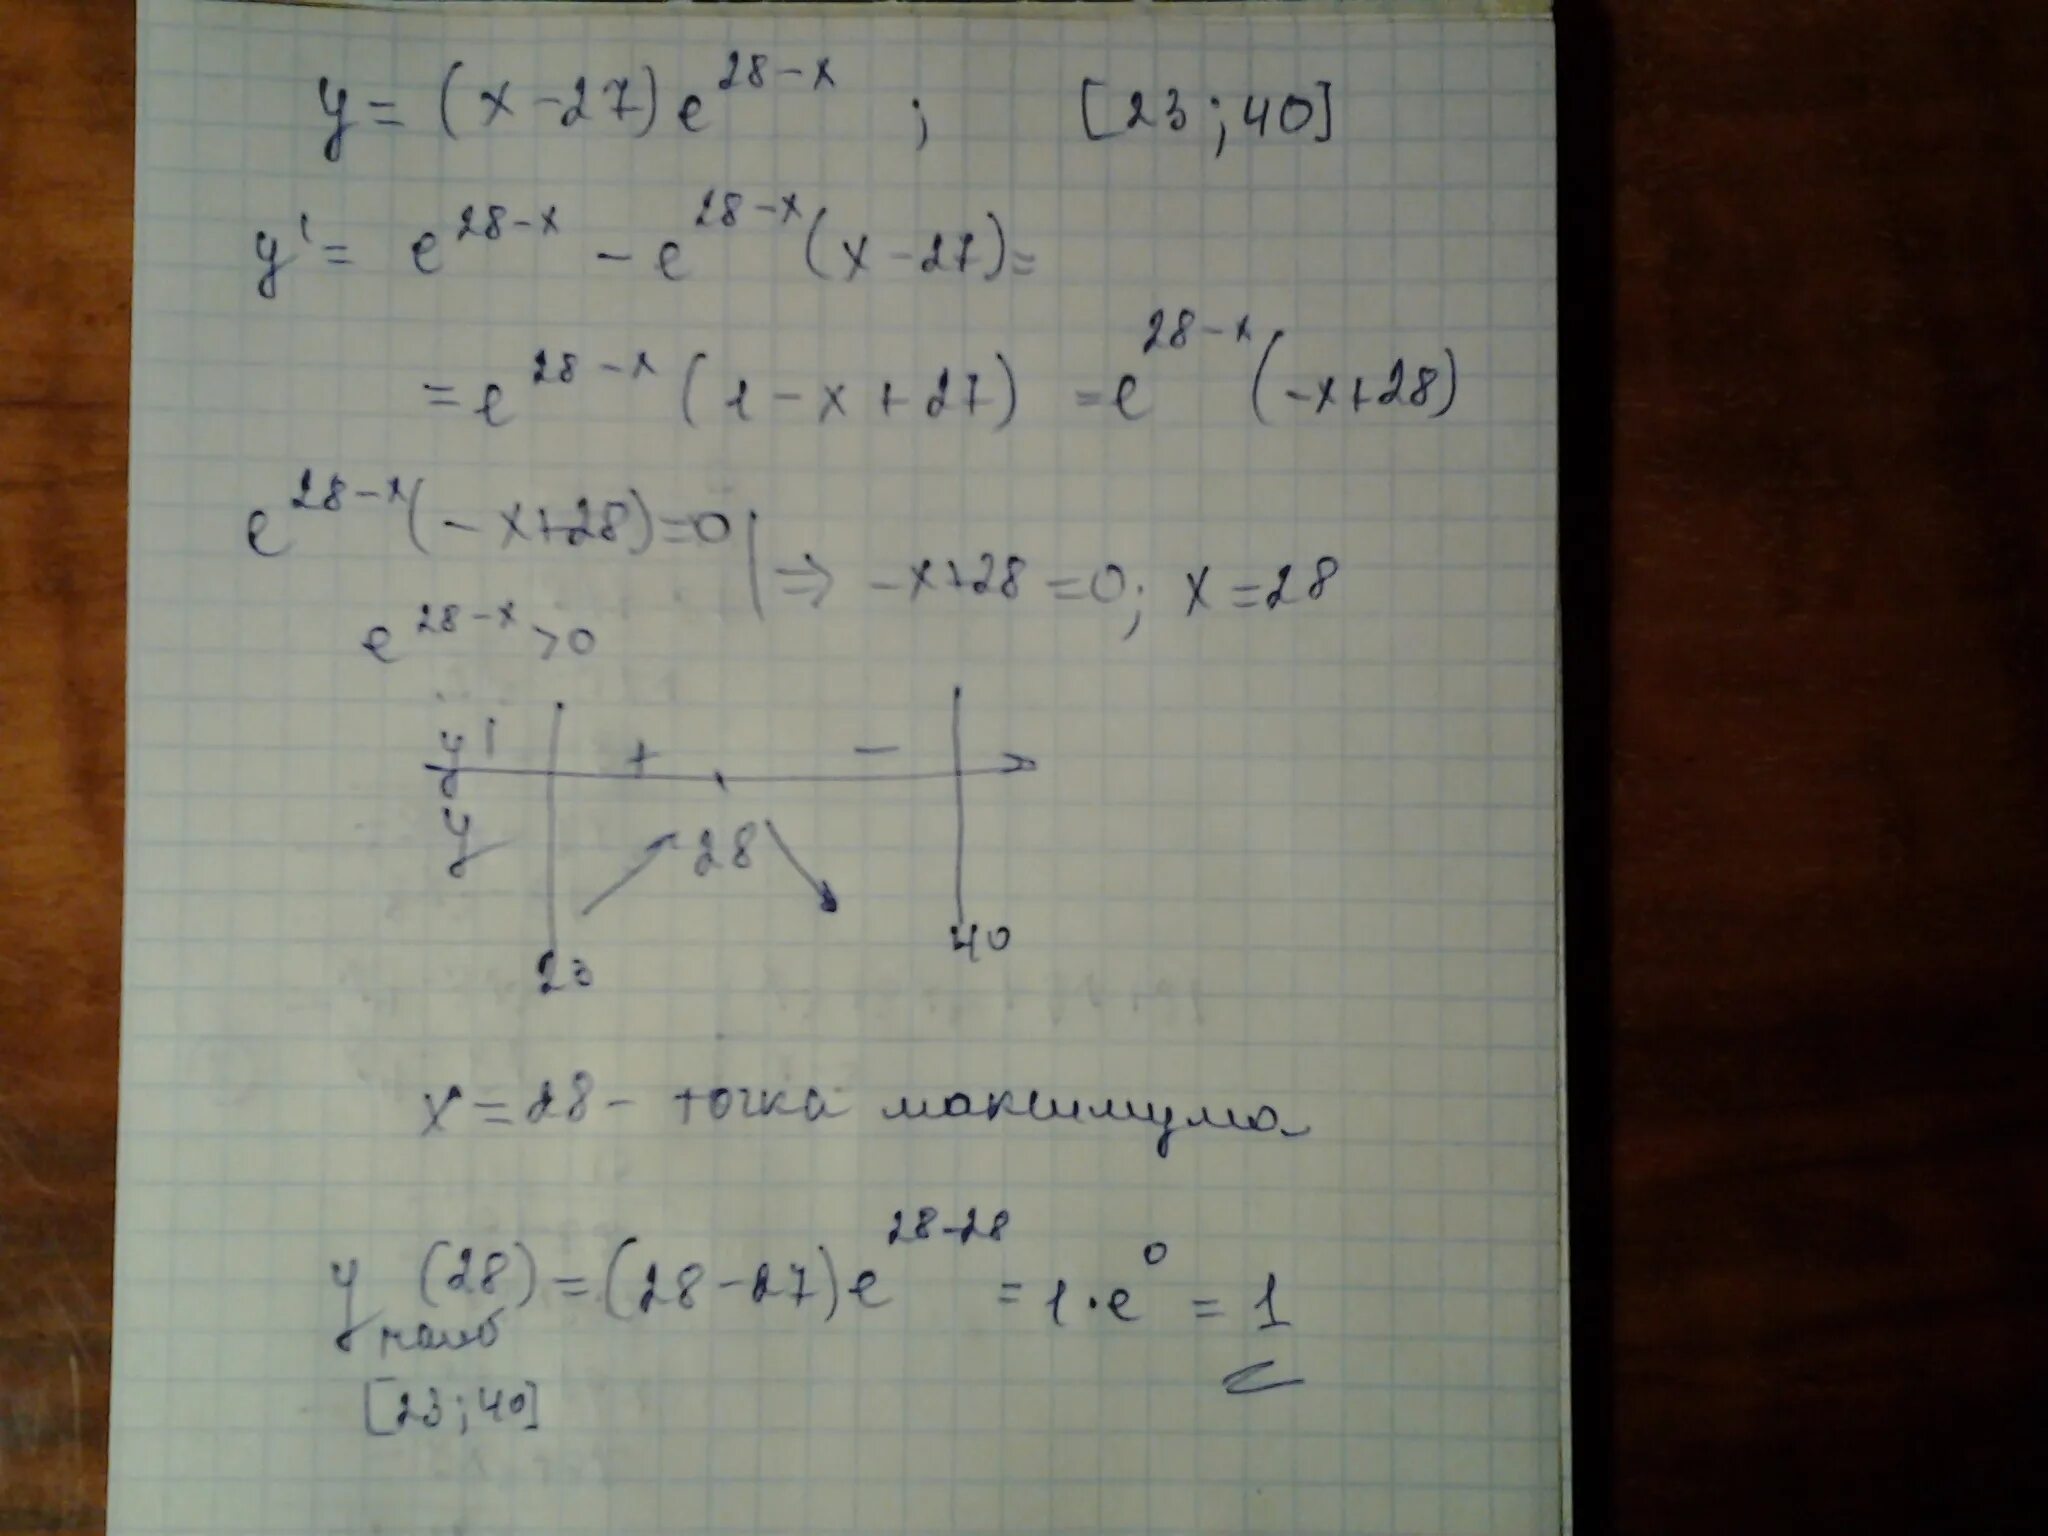 y = (x-27)e^{28-x} ; [23;40]
y' = e^{28-x} - e^{28-x}(x-27)=
= e^{28-x} (1-x+27) = e^{28-x}(-x+28)
e^{28-x}(-x+28)=0 | ⇒ -x+28=0; x=28
e^{28-x}>0
y' + -
y 28
23 40
x=28 - точка максимума
y наиб (28) = (28-27)e^{28-28} = 1·e^0 = 1
[23;40]